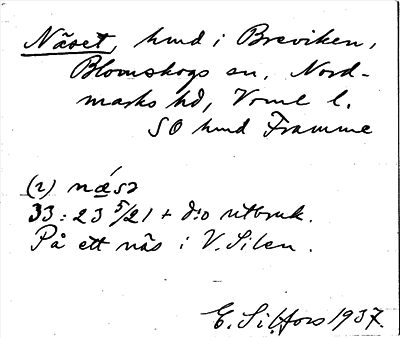 Näset, hmd i Breviken,
Blomskogs sn, Nord-
marks hd, Vrml l.
SO hmd Framme
(2) næ´sə
33: 23 5/21 + d:o utbruk.
På ett näs i V. Silen.
E. Silfors 1937.